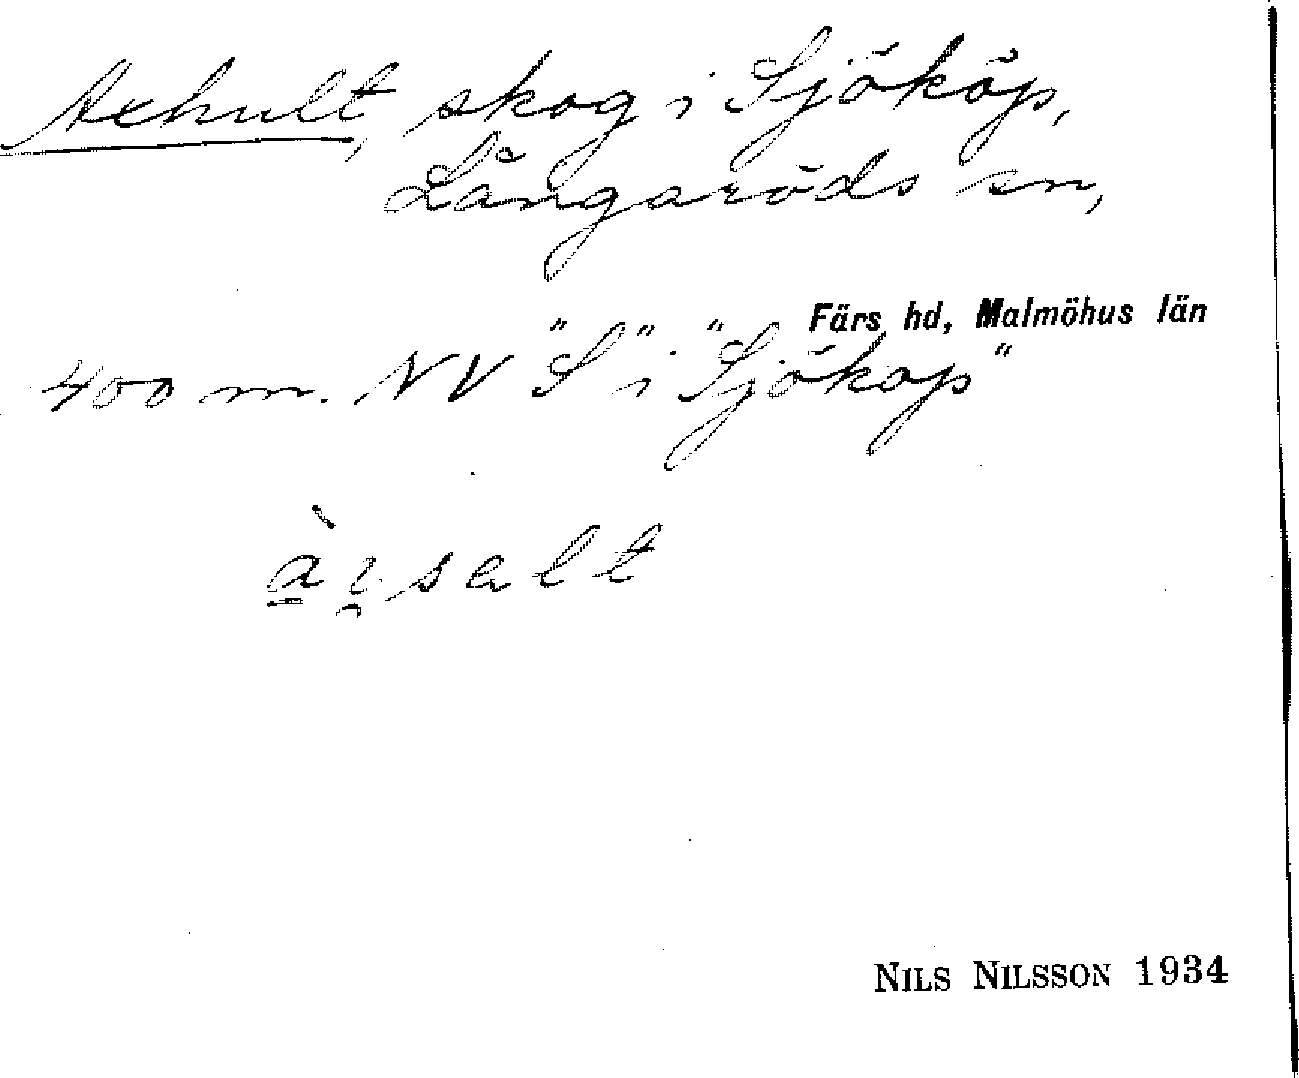 Axhult, skog i Sjököp,
Långaröds sn,
Färs hd, Malmöhus län
400 m. NV "S" i "Sjököp"
NILS NILSSON 1934